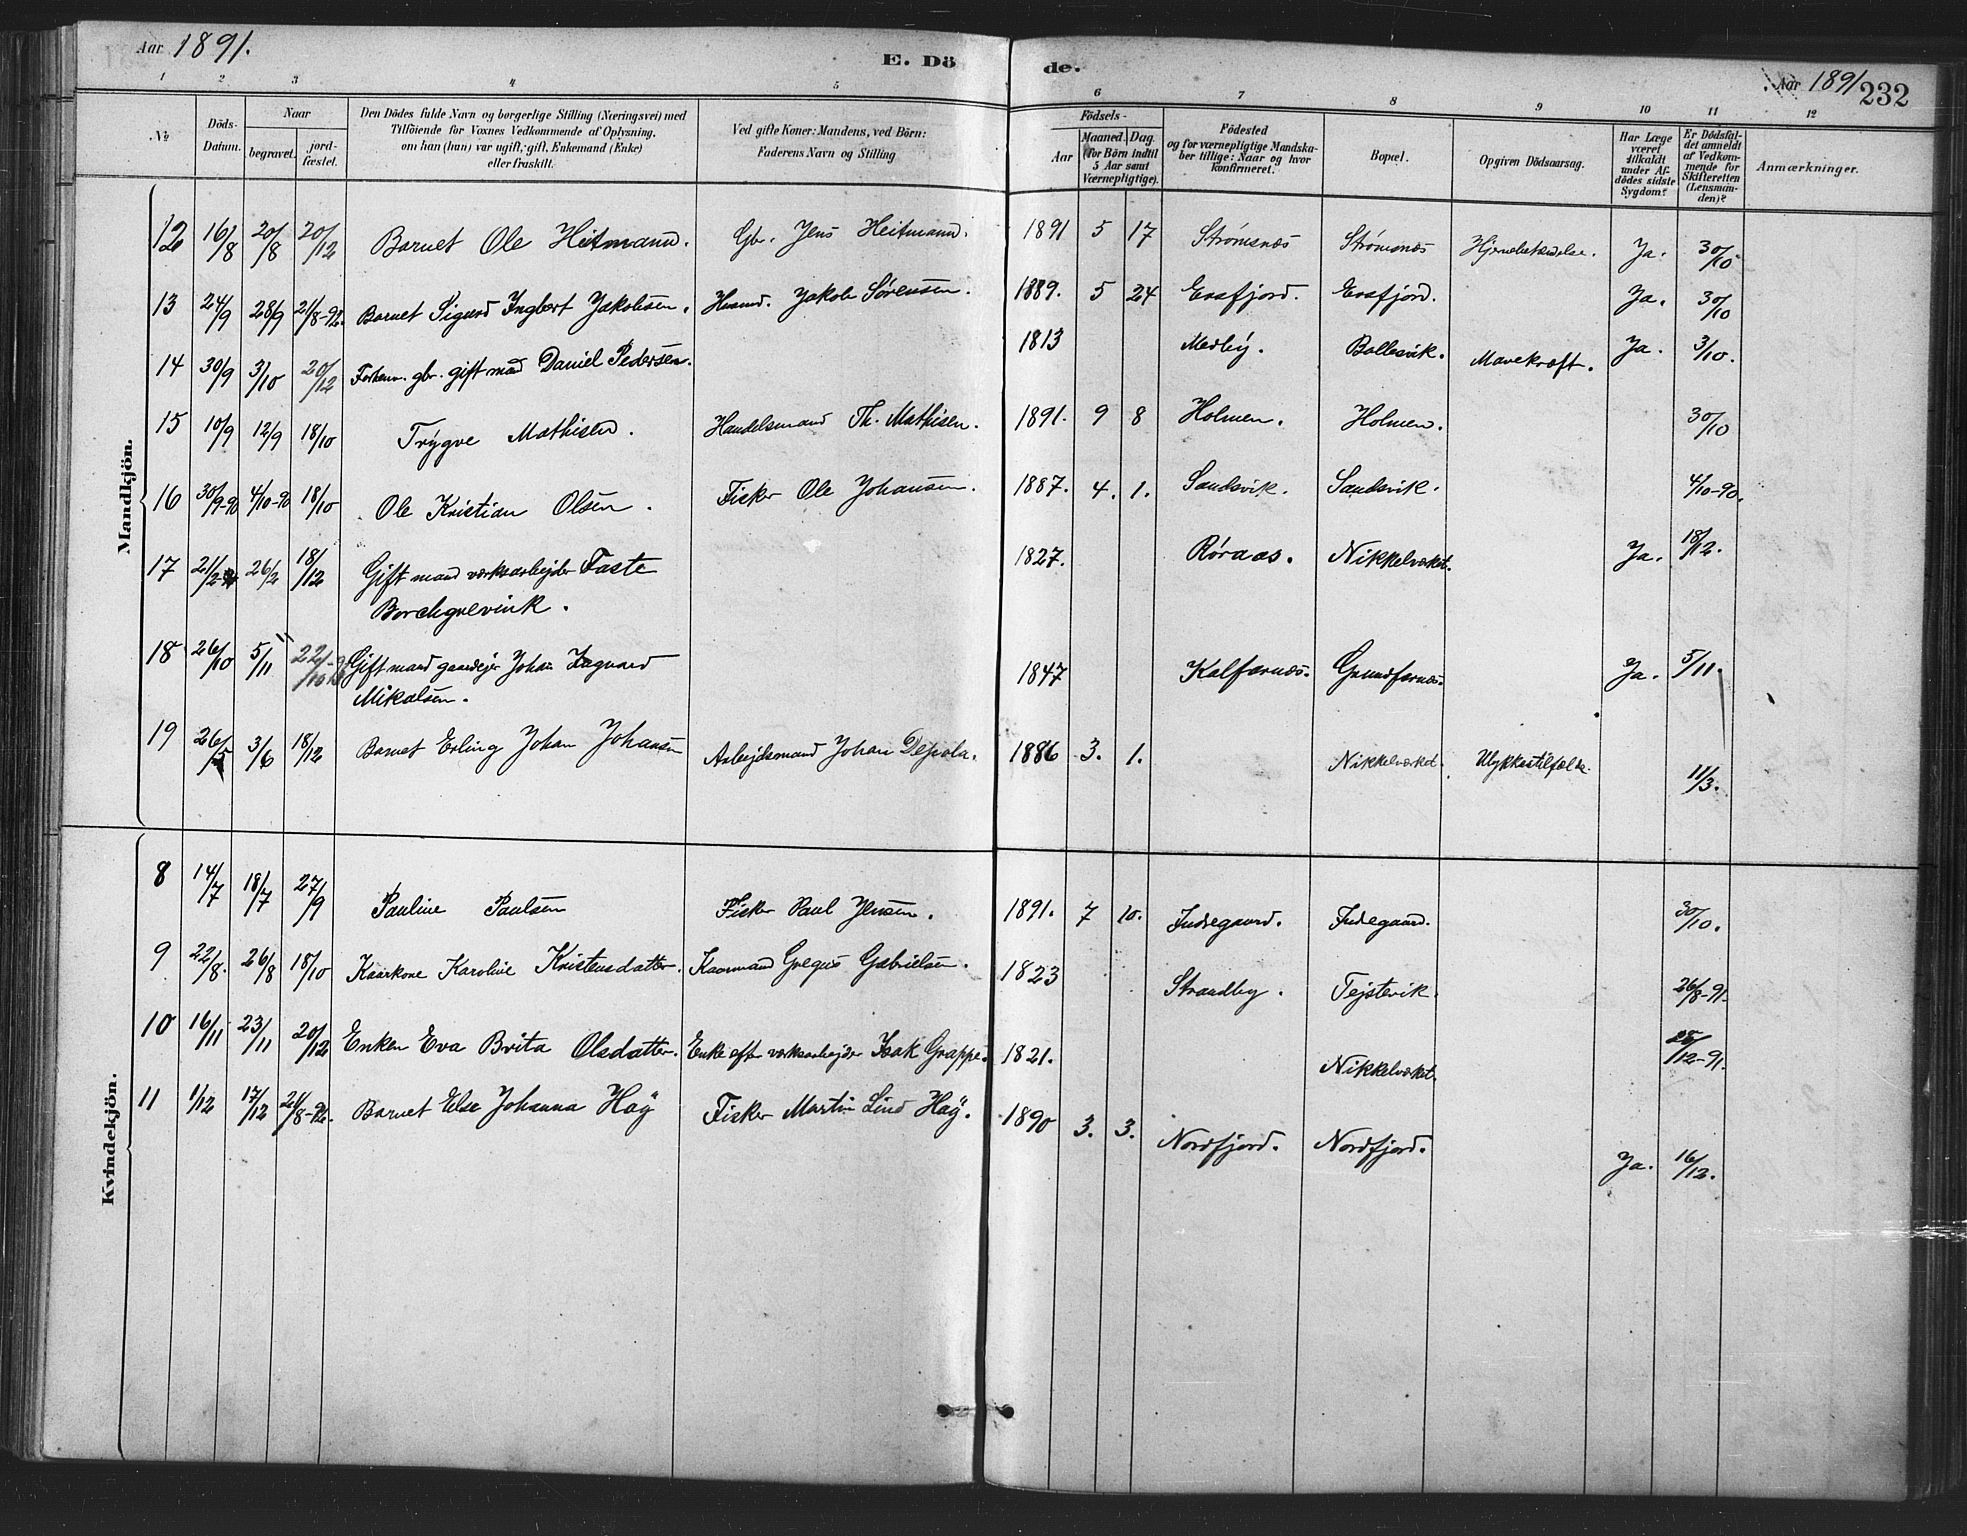 Aar 1891.
E. Dö
de.
Aar 1891
232
1 2 3 4 5 6 7 8 9 10 11 12
№
Döds-
Datum.
Naar
begravet.
jord-
fæstet.
Den Dödes fulde Navn og borgerlige Stilling (Næringsvei) med
Tilföiende for Voxnes Vedkommende af Oplysning,
om han (hun) var ugift, gift, Enkemand (Enke)
eller fraskilt.
Ved gifte Koner: Mandens, ved Börn:
Faderens Navn og Stilling
Födsels-
Aar
Maaned. Dag.
(for Börn indtil
5 Aar samt
Værnepligtige).
Födested
og for værnepligtige Mandska-
ber tillige: Naar og hvor
konfirmeret.
Bopæl.
Opgiven Dödsaarsag.
Har Læge
været
tilkaldt
under Af-
dödes sidste
Sygdom?
Er Dödsfal-
det anmeldt
af Vedkom-
mende for
Skifteretten
(Lensman-
den)?
Anmærkninger.
Mandkjön.
12 16/8 20/8 20/12 Barnet Ole Heitmann. Gbr. Jens Heitmann. 1891 5 17 Strømsnæs Strømsnæs Hjernebetændelse. Ja. 30/10
13 24/9 28/9 21/8-92. Barnet Sigurd Ingbert Jakobsen. Husmd. Jakob Sørensen. 1889. 5 24 Ersfjord. Ersfjord. Ja. 30/10
14 30/9 3/10 20/12 Forhenv. gbr. gift mand Daniel Pedersen. 1813 Medby. Ballesvik. Mavekræft. Ja. 3/10.
15 10/9 12/9 18/10 Trygve Mathisen. Handelsmand Th. Mathisen. 1891. 9 8 Holmen. Holmen. 30/10
16 30/9-90 4/10-90 18/10 Ole Kristian Olsen. Fisker Ole Johansen. 1887. 4. 1. Sandsvik. Sandsvik. 4/10-90.
17 21/2 26/2 18/12 Gift mand værksarbejder Faste
Borchgrevink. 1827. Røraas. Nikkelværket. Ja. 18/12.
18 26/10 5/11 22/10 Gift mand gaardejer Johan Ingvard
Mikalsen. 1847 Kalfarnæs. Grundfarnæs. Ja. 5/11.
19 26/5 3/6 18/12 Barnet Erling Johan Johansen Arbejdsmand Johan Depola. 1886 3. 1. Nikkelværket. Ulykkestilfælde 11/3.
Kvindekjön.
8 14/7 18/7 27/9 Pauline Paulsen Fisker Paul Jensen. 1891. 7 10. Indregaard. Indregaard. 30/10.
9 22/8. 26/8 18/10 Kaarkone Karoline Kristensdatter. Kaarmand Gregus Gabrielsen. 1823 Strandby. Tejstevik. 26/8-91.
10 16/11 23/11 20/12 Enken Eva Brita Olsdatter. Enke efter værksarbejder Isak Grappe. 1821. Nikkelværket. 28/12-91.
11 1/12 17/12 21/8-92. Barnet Else Johanna Haÿ Fisker Martin Lind Haÿ. 1890 3. 3. Nordfjord. Nordfjord. Ja. 16/12.